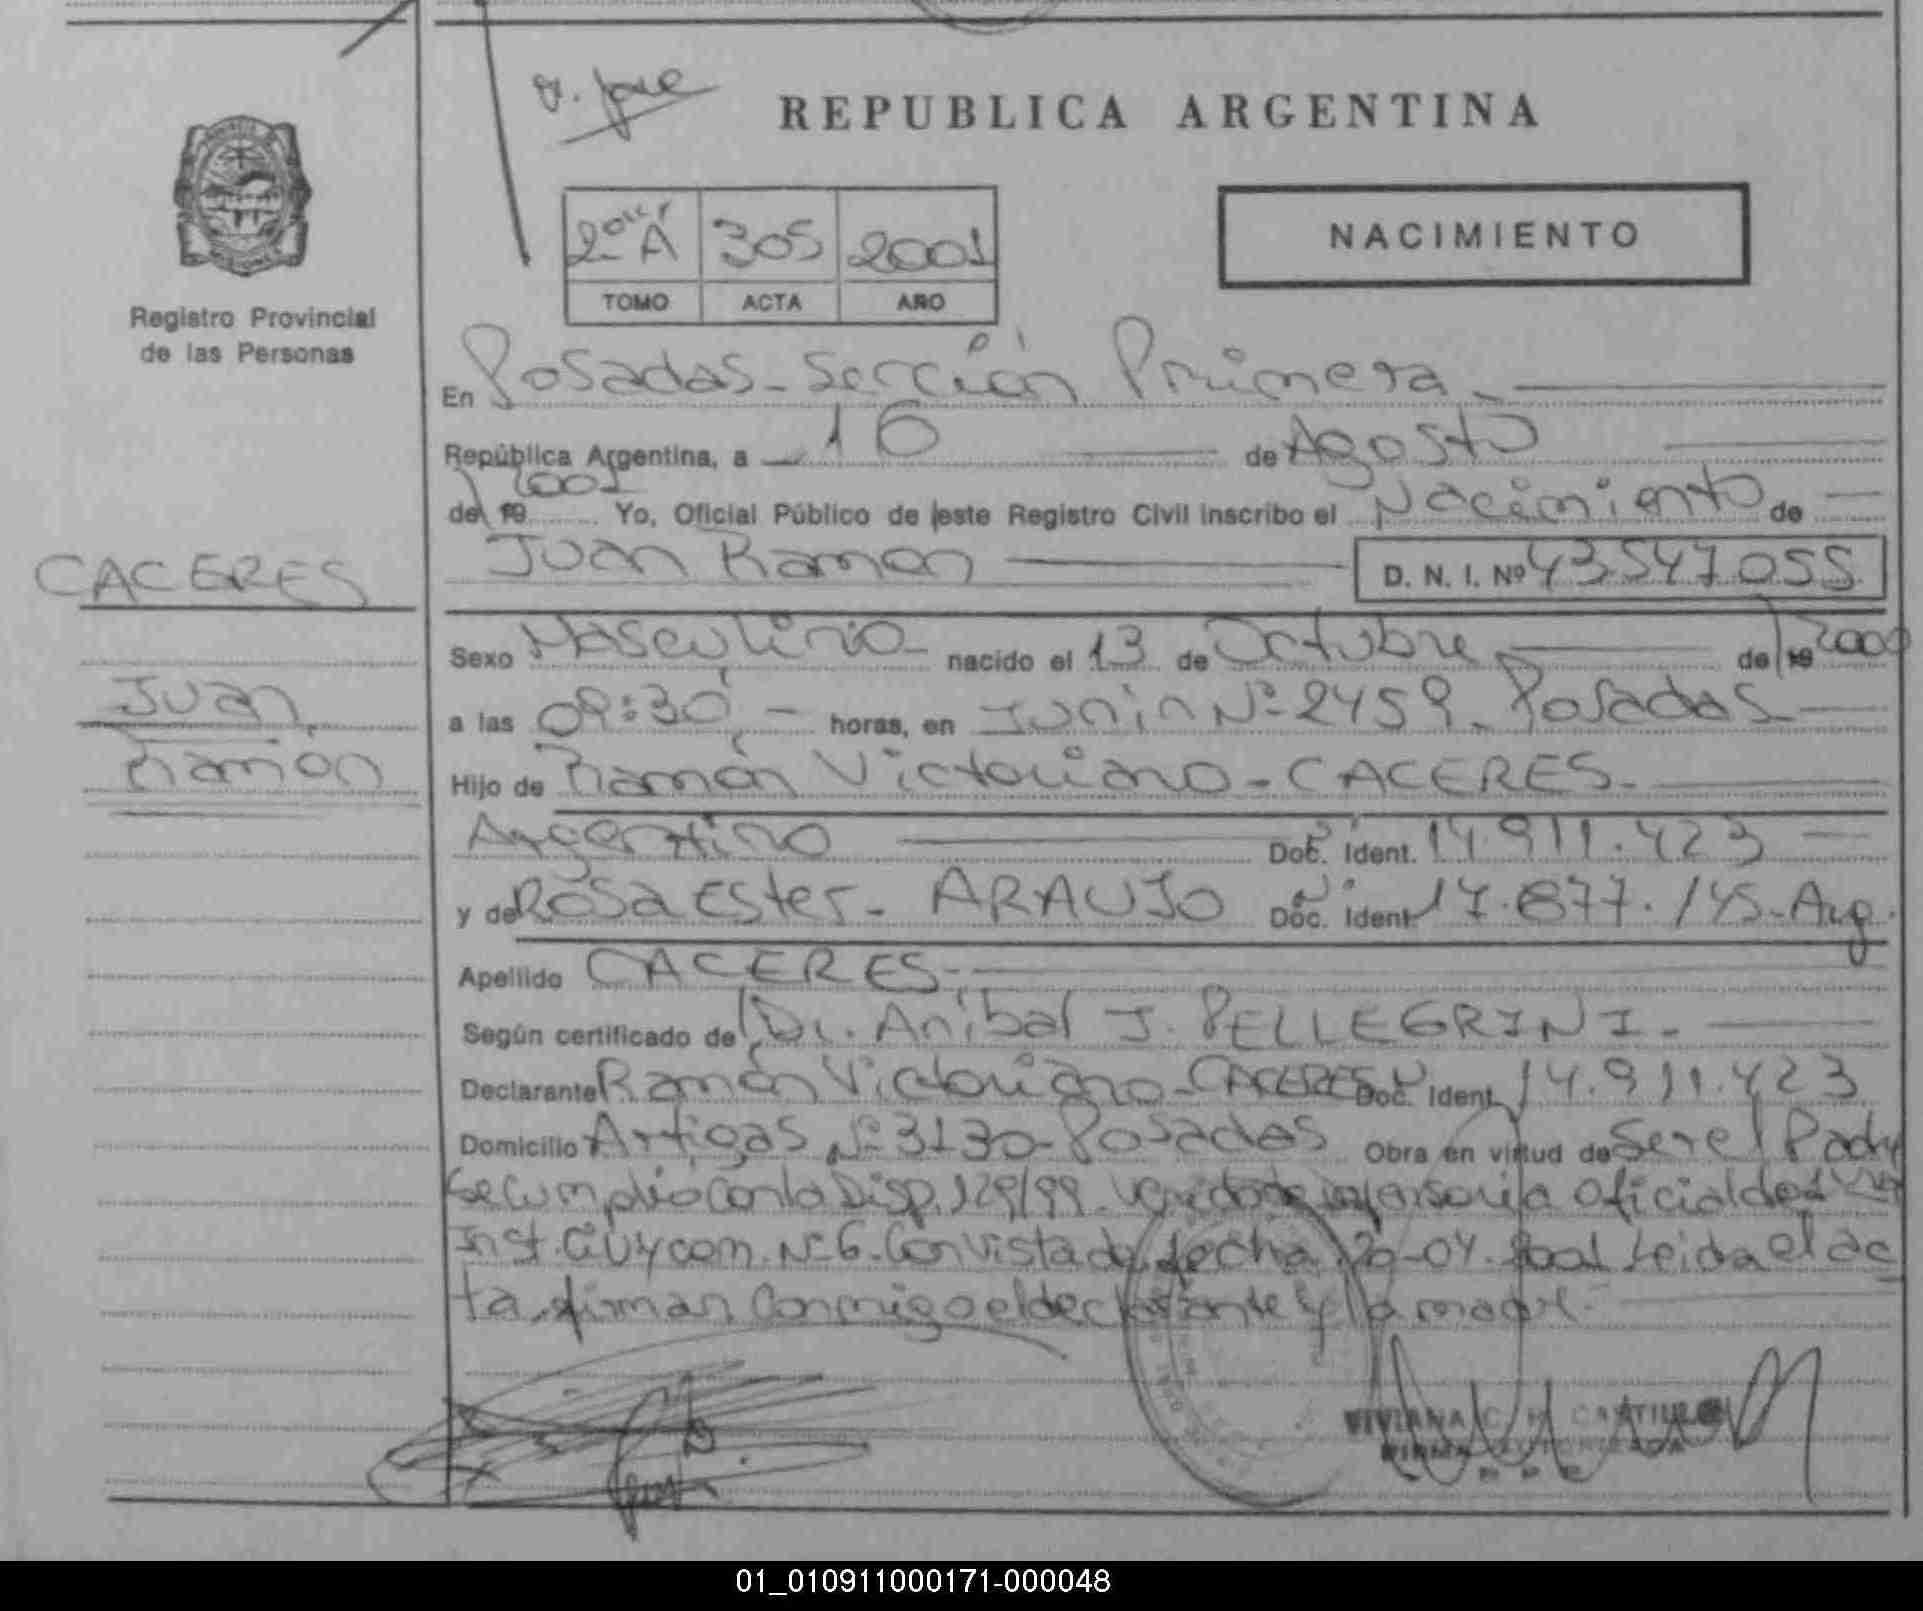 REPUBLICA ARGENTINA
2º A 305 2001
TOMO ACTA AÑO
NACIMIENTO
Registro Provincial
de las Personas
CACERES
Juan
Ramón
En Posadas - Sección Primera
República Argentina, a 16 de Agosto
de 19 2001 Yo, Oficial Público de este Registro Civil inscribo el Nacimiento de
Juan Ramon D. N. I. Nº 43.547.055
Sexo Masculino - nacido el 13 de Octubre de 19 2000
a las 09:30 - horas, en Junin Nº 2459 - Posadas
Hijo de Ramón Victoriano - CACERES -
Argentino Doc. Ident. 14.911.423
y de Rosa Ester - ARAUJO Doc. Ident. 17.877.145 - Arg.
Apellido CACERES -
Según certificado de Dr. Anibal J. PELLEGRINI -
Declarante Ramón Victoriano - CACERES Doc. Ident. 14.911.423
Domicilio Artigas Nº 3130 - Posadas Obra en virtud de Ser el Padre
Se cumplio con la Disp. 129/99. oficial de
Inst. Civ y com. Nº 6 - Con vista de fecha 20-04-2001 Leida el ac
ta firman conmigo el declarante y la madre -
VIVIANA C. CASTILLO
FIRMA AUTORIZADA
01_010911000171-000048